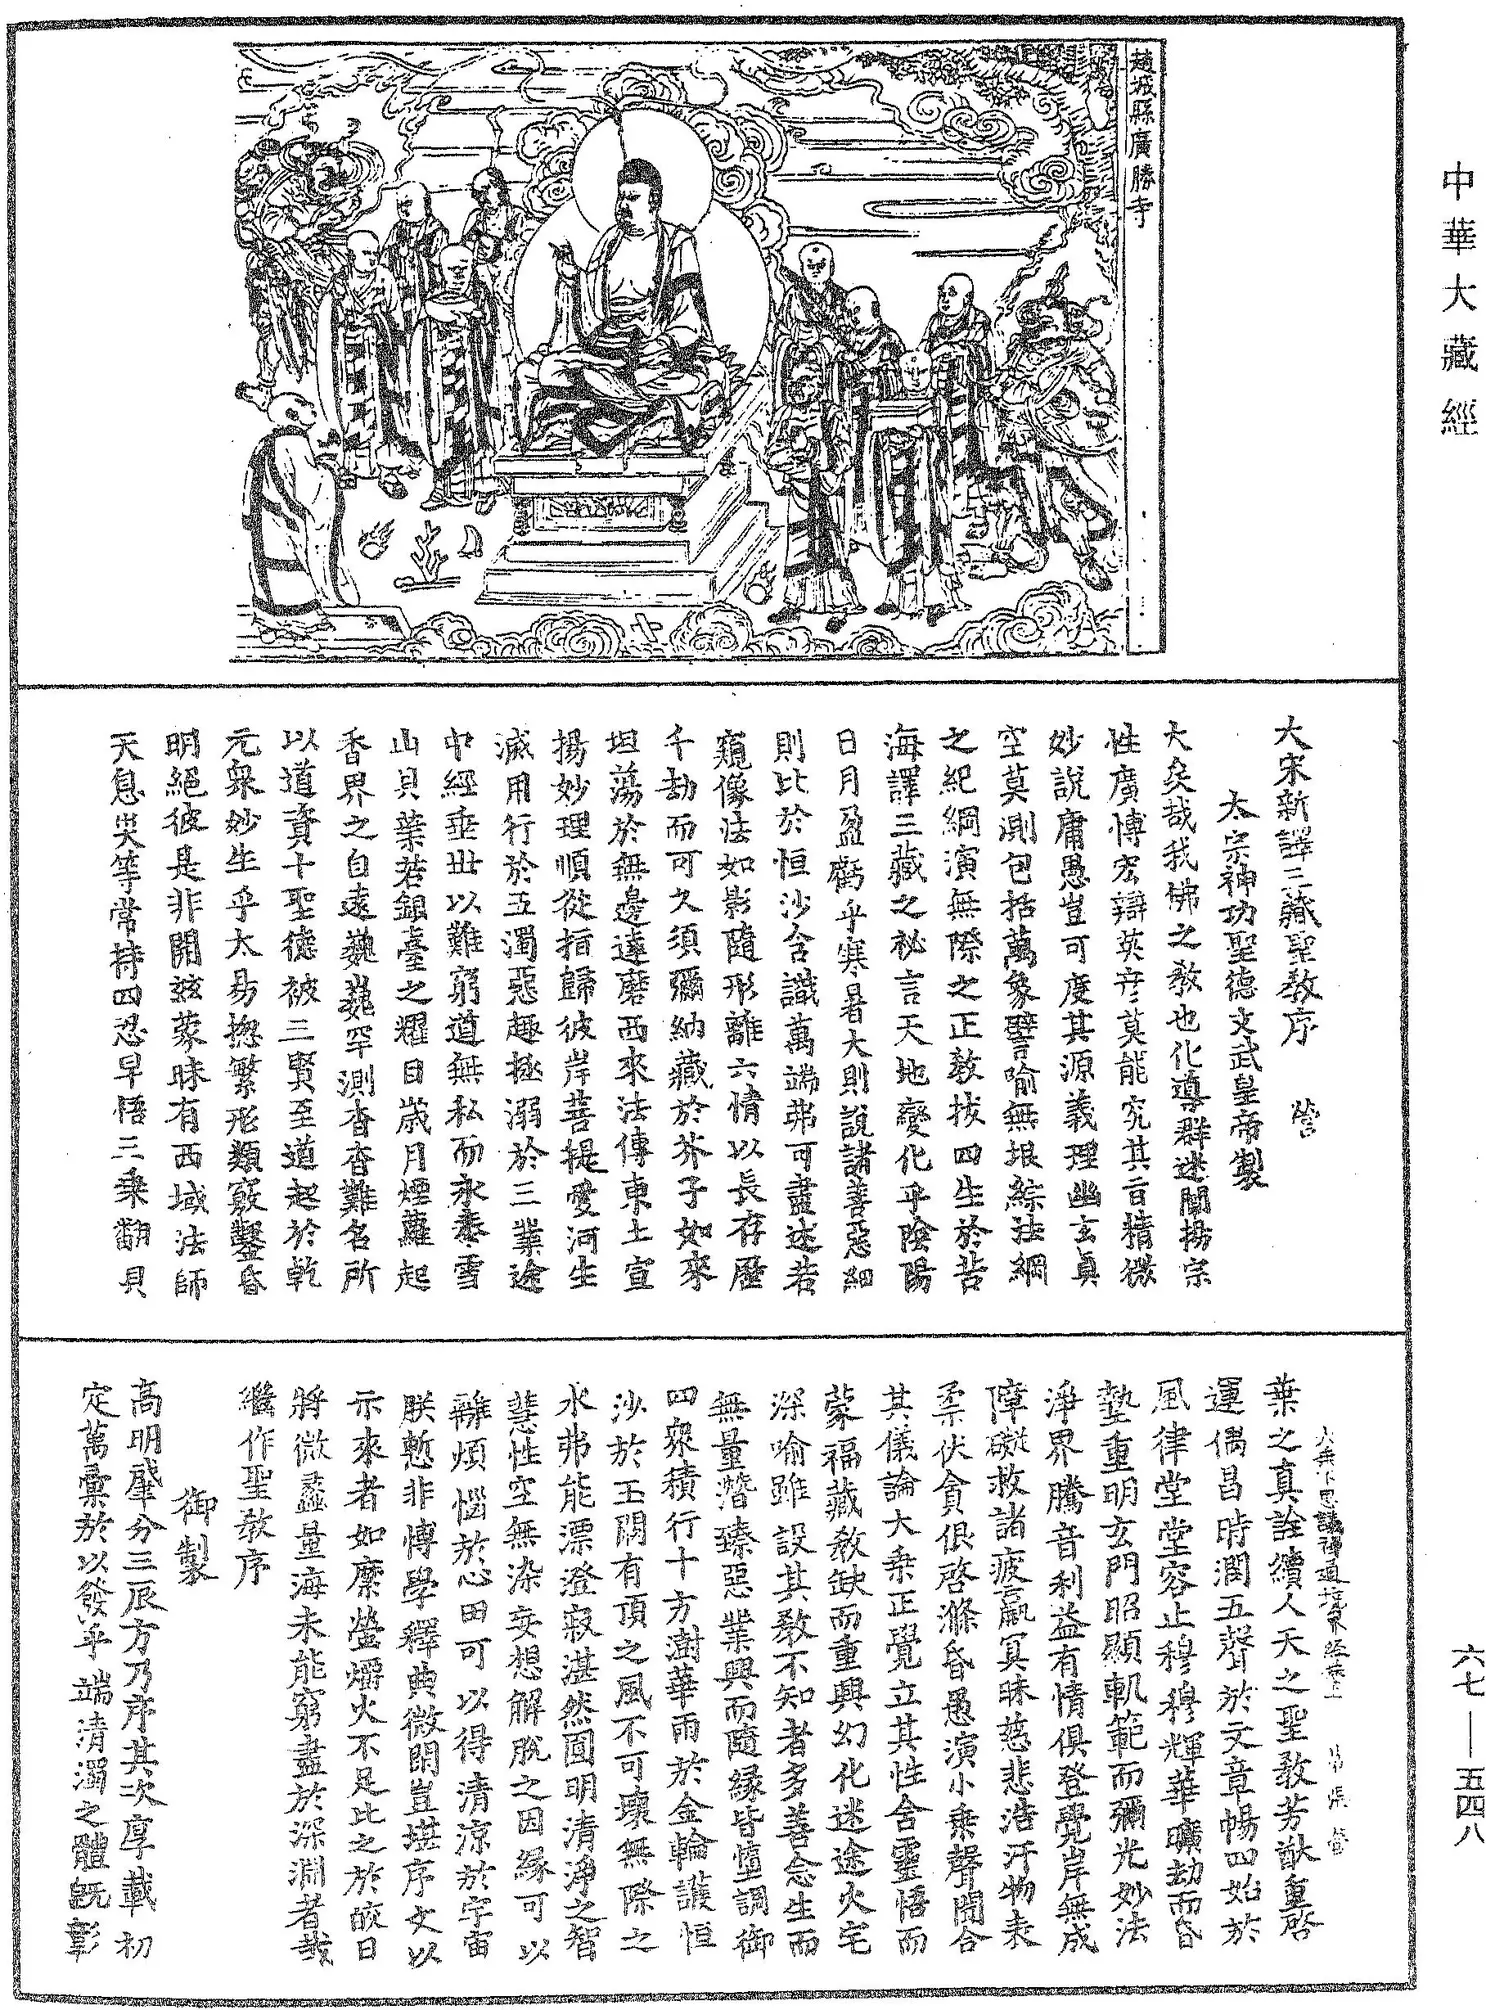 中華大藏經
趙城縣廣勝寺
大宋新譯三藏聖教序　營
太宗神功聖德文武皇帝製
大矣哉我佛之教也化導群迷闡揚宗
性廣博宏辯英彥莫能究其旨精微
妙說庸愚豈可度其源義理幽玄真
空莫測包括萬象譬喻無垠綜法網
之紀綱演無際之正教拔四生於苦
海譯三藏之祕言天地變化乎陰陽
日月盈虧乎寒暑大則說諸善惡細
則比於恒沙含識萬端弗可盡述若
窺像法如影隨形離六情以長存歷
千劫而可久須彌納藏於芥子如來
坦蕩於無邊達磨西來法傳東土宣
揚妙理順從指歸彼岸菩提愛河生
滅用行於五濁惡趣拯溺於三業途
中經垂世以難窮道無私而永泰雪
山貝葉若銀臺之耀目歲月煙蘿起
香界之自遠巍巍罕測杳杳難名所
以道資十聖德被三賢至道起於乾
元眾妙生乎太易揔繁形類竅鑿昏
明絕彼是非開兹蒙昧有西域法師
天息灾等常持四忍早悟三乘翻貝
葉之真詮續人天之聖教芳猷重啓
運偶昌時潤五聲於文章暢四始於
風律堂堂容止穆穆輝華曠劫而昏
墊重明玄門昭顯軌範而彌光妙法
淨界騰音利益有情俱登覺岸無成
障礙救諸疲羸冥昧慈悲浩汗物表
柔伏貪很啓滌昏愚演小乘聲聞合
其儀論大乘正覺立其性含靈悟而
蒙福藏教缺而重興幻化迷途火宅
深喻雖設其教不知者多善念生而
無量潛臻惡業興而隨緣皆墮調御
四眾積行十方澍華雨於金輪護恒
沙於玉闕有頂之風不可壞無際之
水弗能漂澄寂湛然圓明清淨之智
慧性空無染妄想解脫之因緣可以
離煩惱於心田可以得清涼於宇宙
朕慙非博學釋典微閑豈堪序文以
示來者如縻螢爝火不足比之於皎日
將微蠡量海未能窮盡於深淵者哉
繼作聖教序
御製
高明肇分三辰方乃序其次厚載初
定萬彙於以發乎端清濁之體既彰
六七—五四八